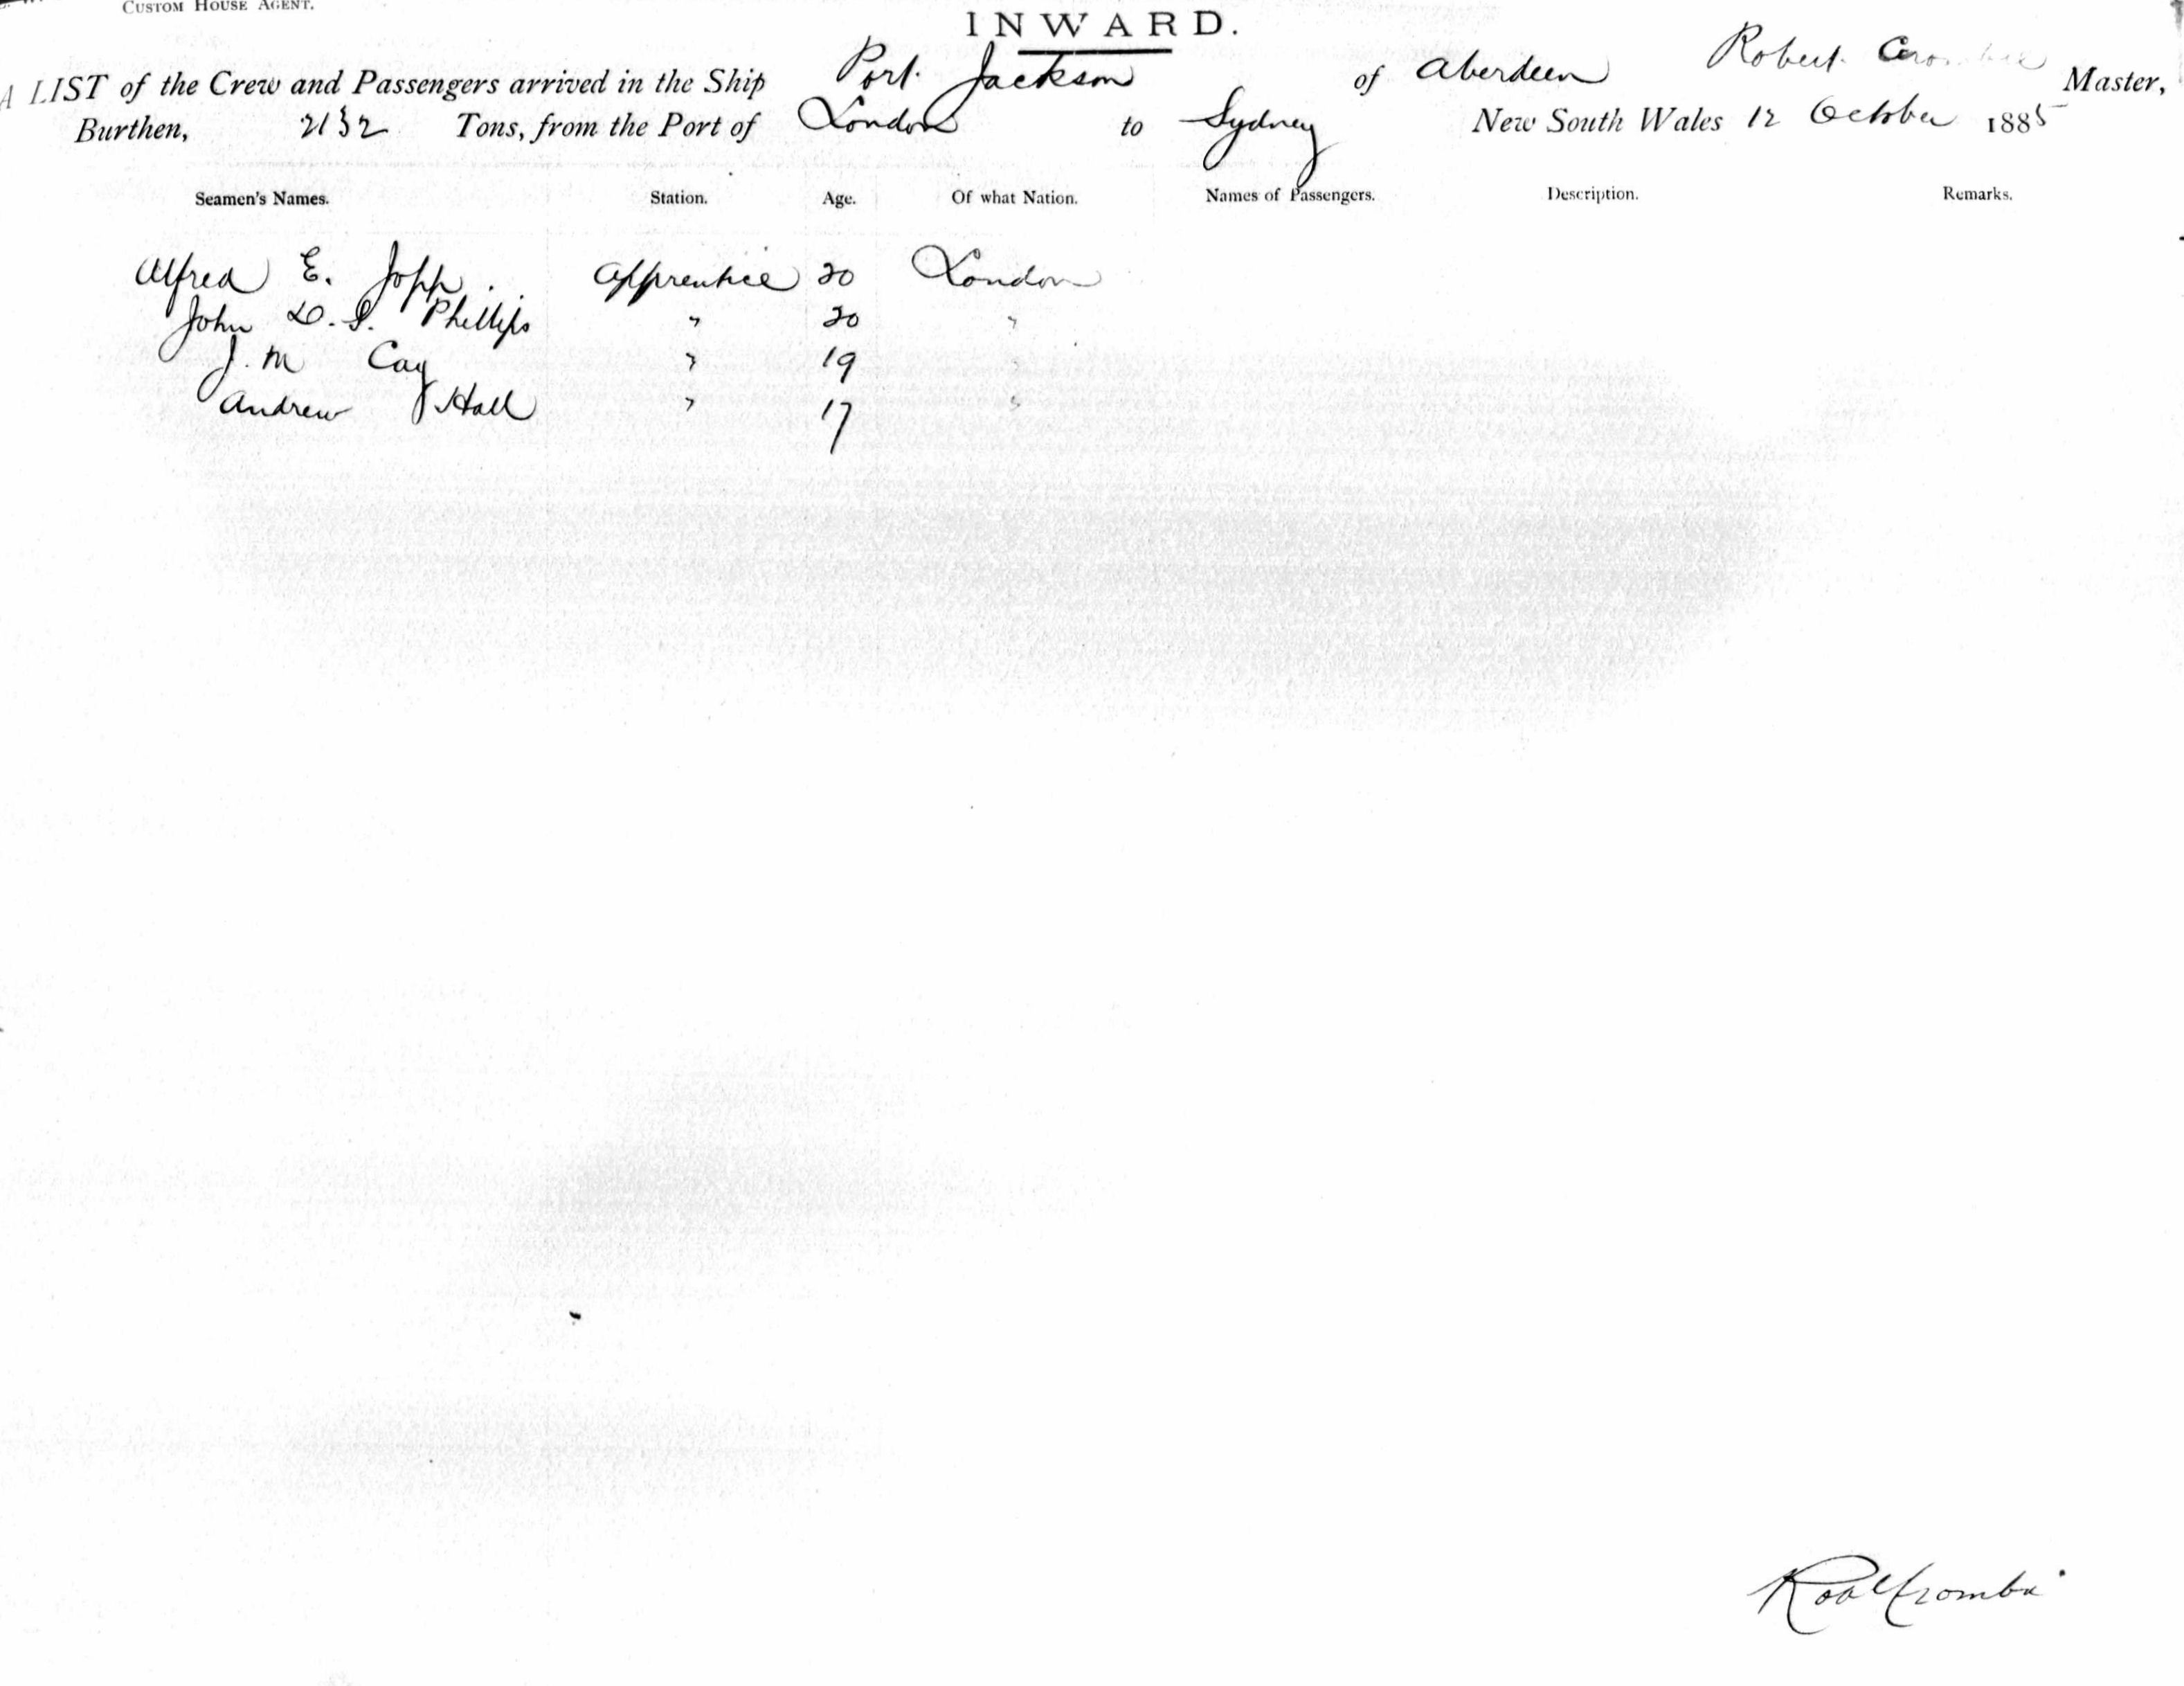 CUSTOM HOUSE AGENT.
INWARD.
A LIST of the Crew and Passengers arrived in the Ship Port Jackson of Aberdeen Robert Crombie Master,
Burthen, 2132 Tons, from the Port of London to Sydney New South Wales 12 October 1885
Seamen's Names. Station. Age. Of what Nation. Names of Passengers. Description. Remarks.
Alfred E. Jopp. Apprentice 20 London
John D. S. Phillips " 20 "
J. M Cay " 19 "
Andrew Hall " 17 "
Robt Crombie